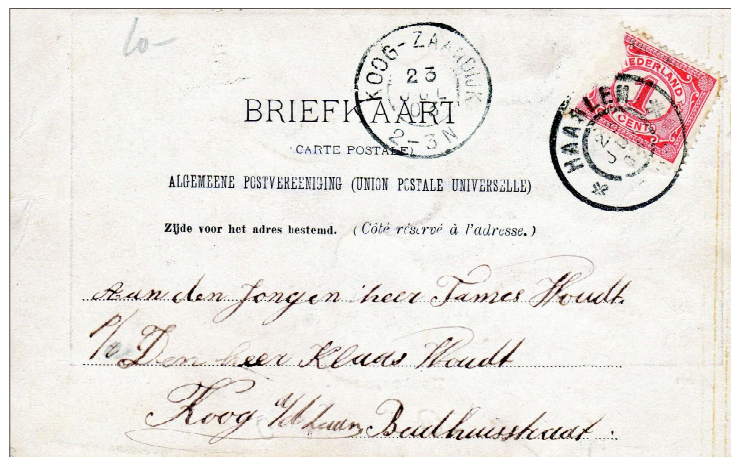 10-
KOOG-ZAANDIJK
23
2-3N
NEDERLAND
1
CENT
HAARLEM
BRIEFKAART
(CARTE POSTALE)
ALGEMEENE POSTVEREENIGING (UNION POSTALE UNIVERSELLE)
Zijde voor het adres bestemd. (Côté réservé à l'adresse.)
Aan den Jongen heer James Woudt.
p/a Den heer Klaas Woudt
Koog a/d Zaan Badhuisstraat.